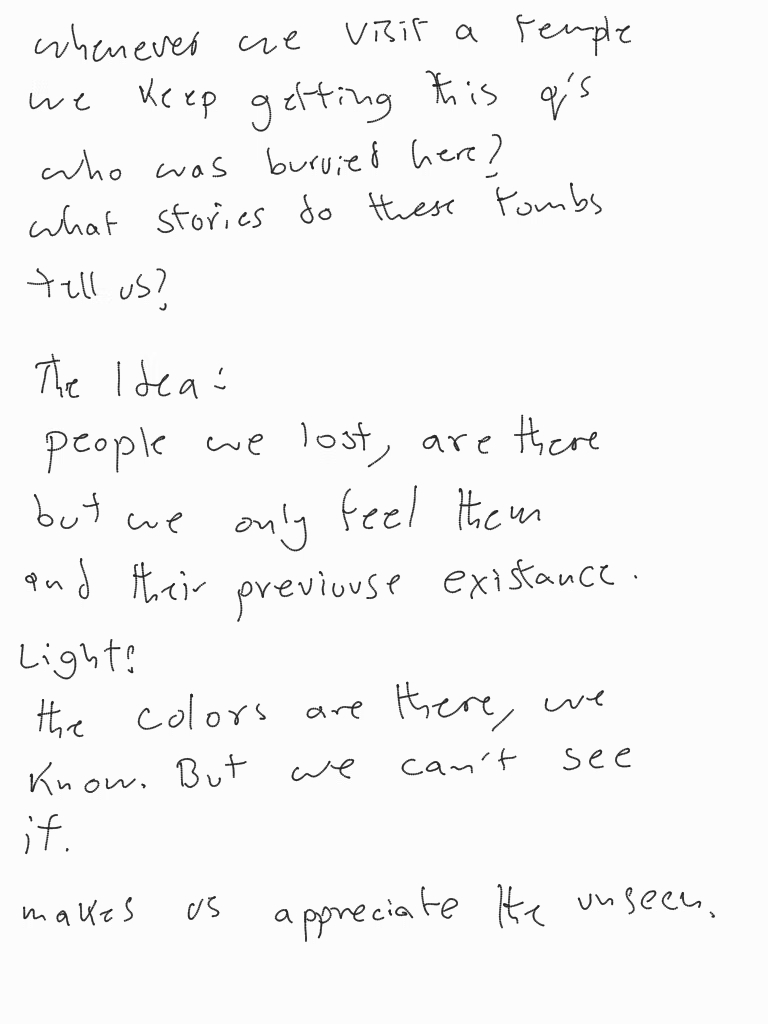 whenever we visit a temple
we keep getting this q's
who was burried here?
what stories do these tombs
tell us?
The Idea:
people we lost, are there
but we only feel them
and their previouse existance.
Light:
the colors are there, we
know. But we can't see
it.
makes us appreciate the unseen.